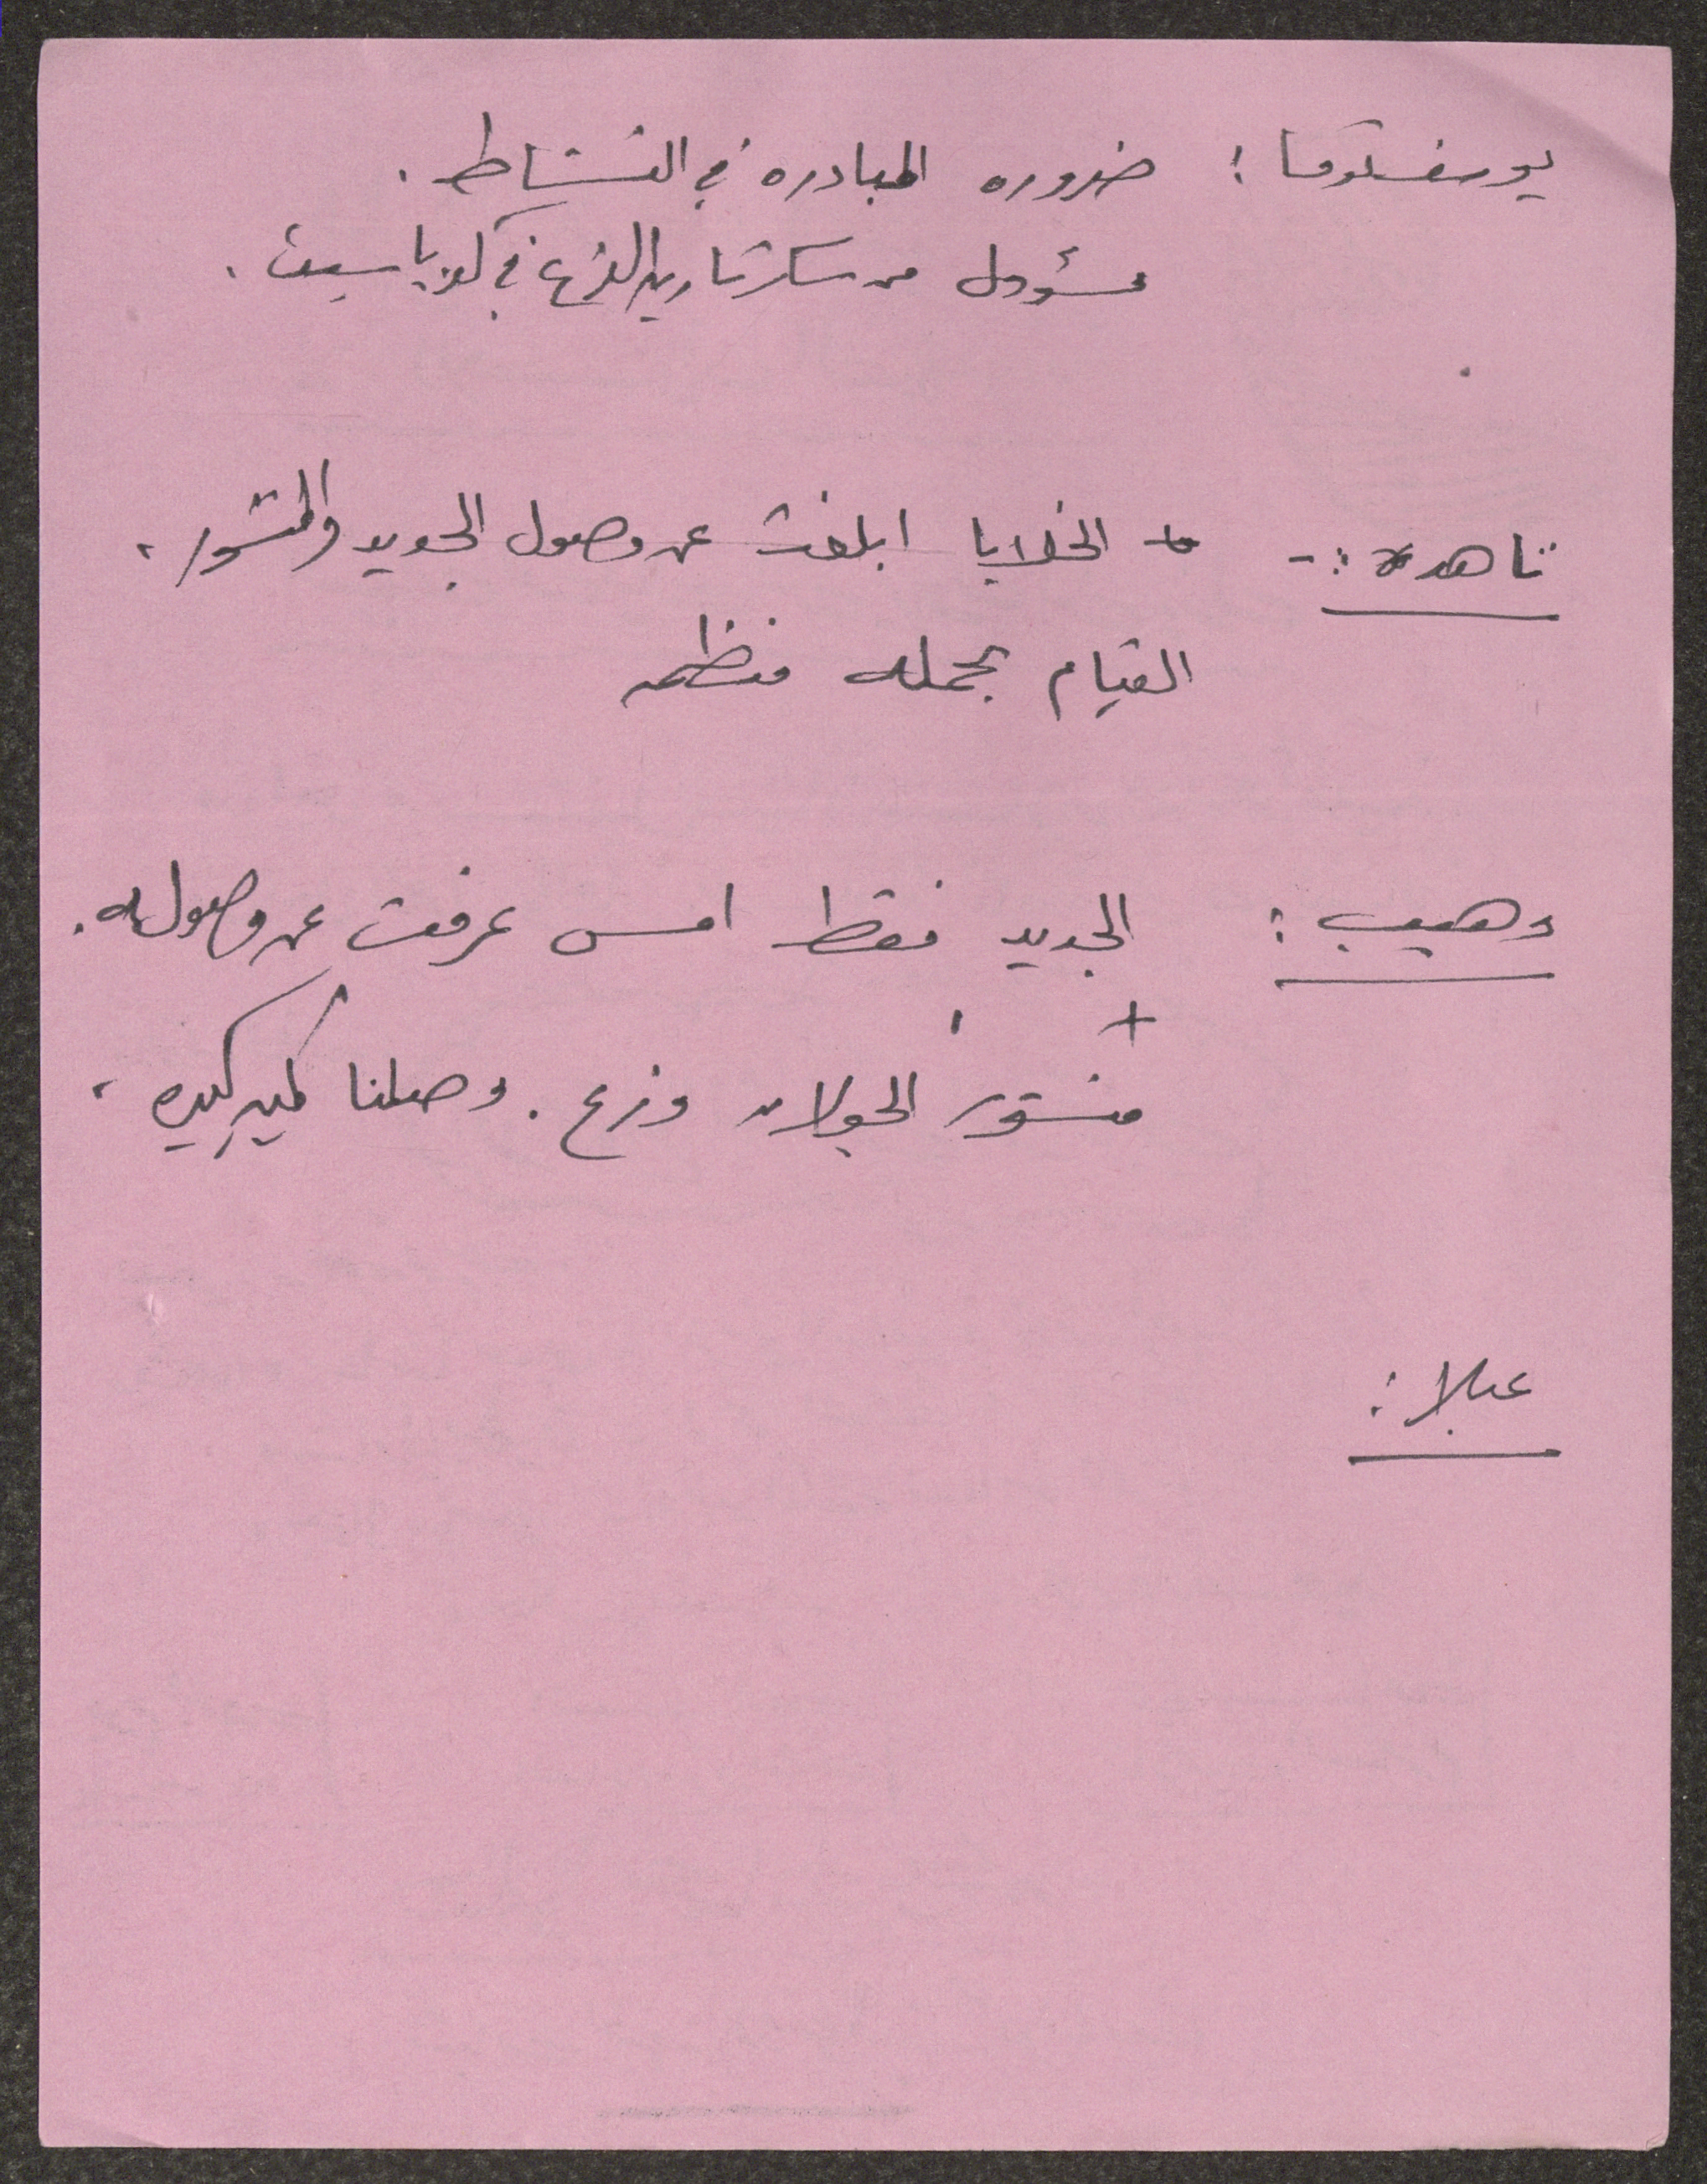 ضروره المبادره في النشاط .
مسؤول من سكرتاريه الفرع في
ناهده :-  الخلايا ابلغت عن وصول الجديد والمنشور .
القيام بحمله منظمه
وهيب : الجديد فقط امس عرفت عن وصوله .
+
منشور الجولان وزع . وصلنا كميه كبيره .
عبلا :